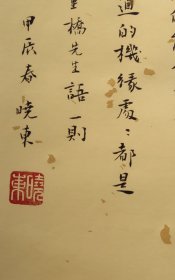 道的機緣處：都是
生橋先生語一則
甲辰春 曉東
曉東